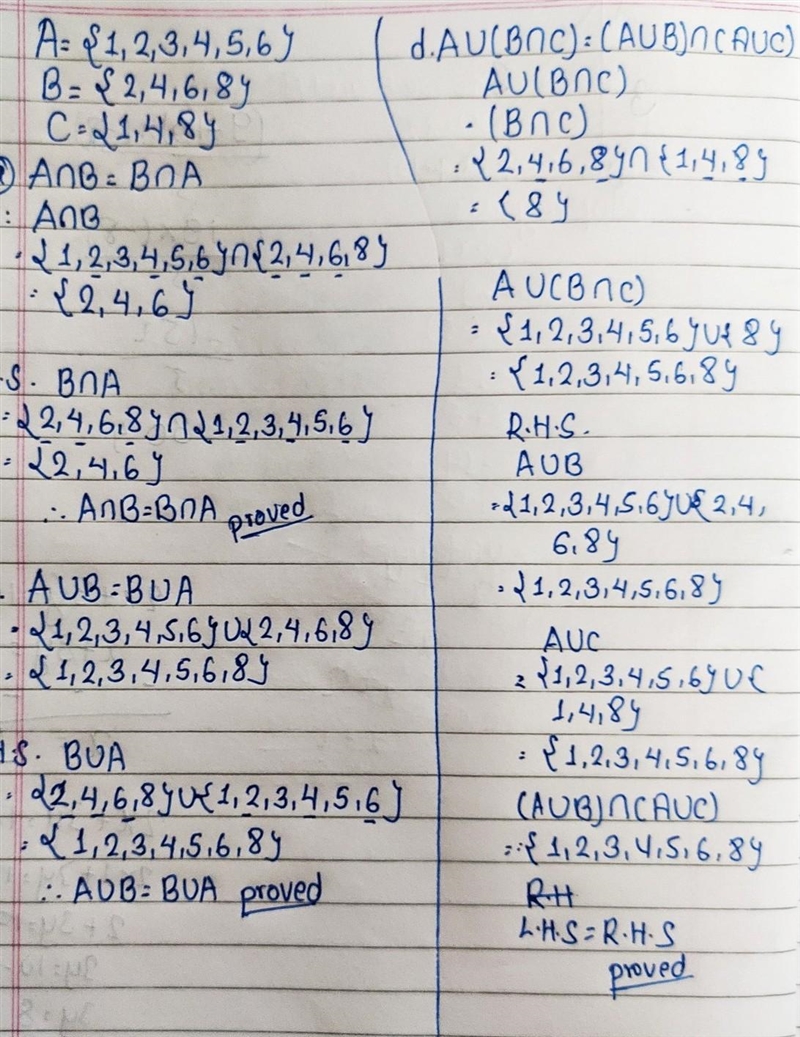 A = {1, 2, 3, 4, 5, 6}
B = {2, 4, 6, 8}
C = {1, 4, 8}
A∩B = B∩A
: A∩B
= {1, 2, 3, 4, 5, 6}∩{2, 4, 6, 8}
= {2, 4, 6}
S. B∩A
= {2, 4, 6, 8}∩{1, 2, 3, 4, 5, 6}
= {2, 4, 6}
∴ A∩B = B∩A proved
. A∪B = B∪A
= {1, 2, 3, 4, 5, 6}∪{2, 4, 6, 8}
= {1, 2, 3, 4, 5, 6, 8}
H.S. B∪A
= {2, 4, 6, 8}∪{1, 2, 3, 4, 5, 6}
= {1, 2, 3, 4, 5, 6, 8}
∴ A∪B = B∪A proved
d. A∪(B∩C) = (A∪B)∩(A∪C)
A∪(B∩C)
. (B∩C)
= {2, 4, 6, 8}∩{1, 4, 8}
= {8}
A∪(B∩C)
= {1, 2, 3, 4, 5, 6}∪{8}
= {1, 2, 3, 4, 5, 6, 8}
R.H.S.
A∪B
= {1, 2, 3, 4, 5, 6}∪{2, 4,
6, 8}
= {1, 2, 3, 4, 5, 6, 8}
A∪C
= {1, 2, 3, 4, 5, 6}∪{
1, 4, 8}
= {1, 2, 3, 4, 5, 6, 8}
(A∪B)∩(A∪C)
= {1, 2, 3, 4, 5, 6, 8}
R.H
L.H.S = R.H.S
proved